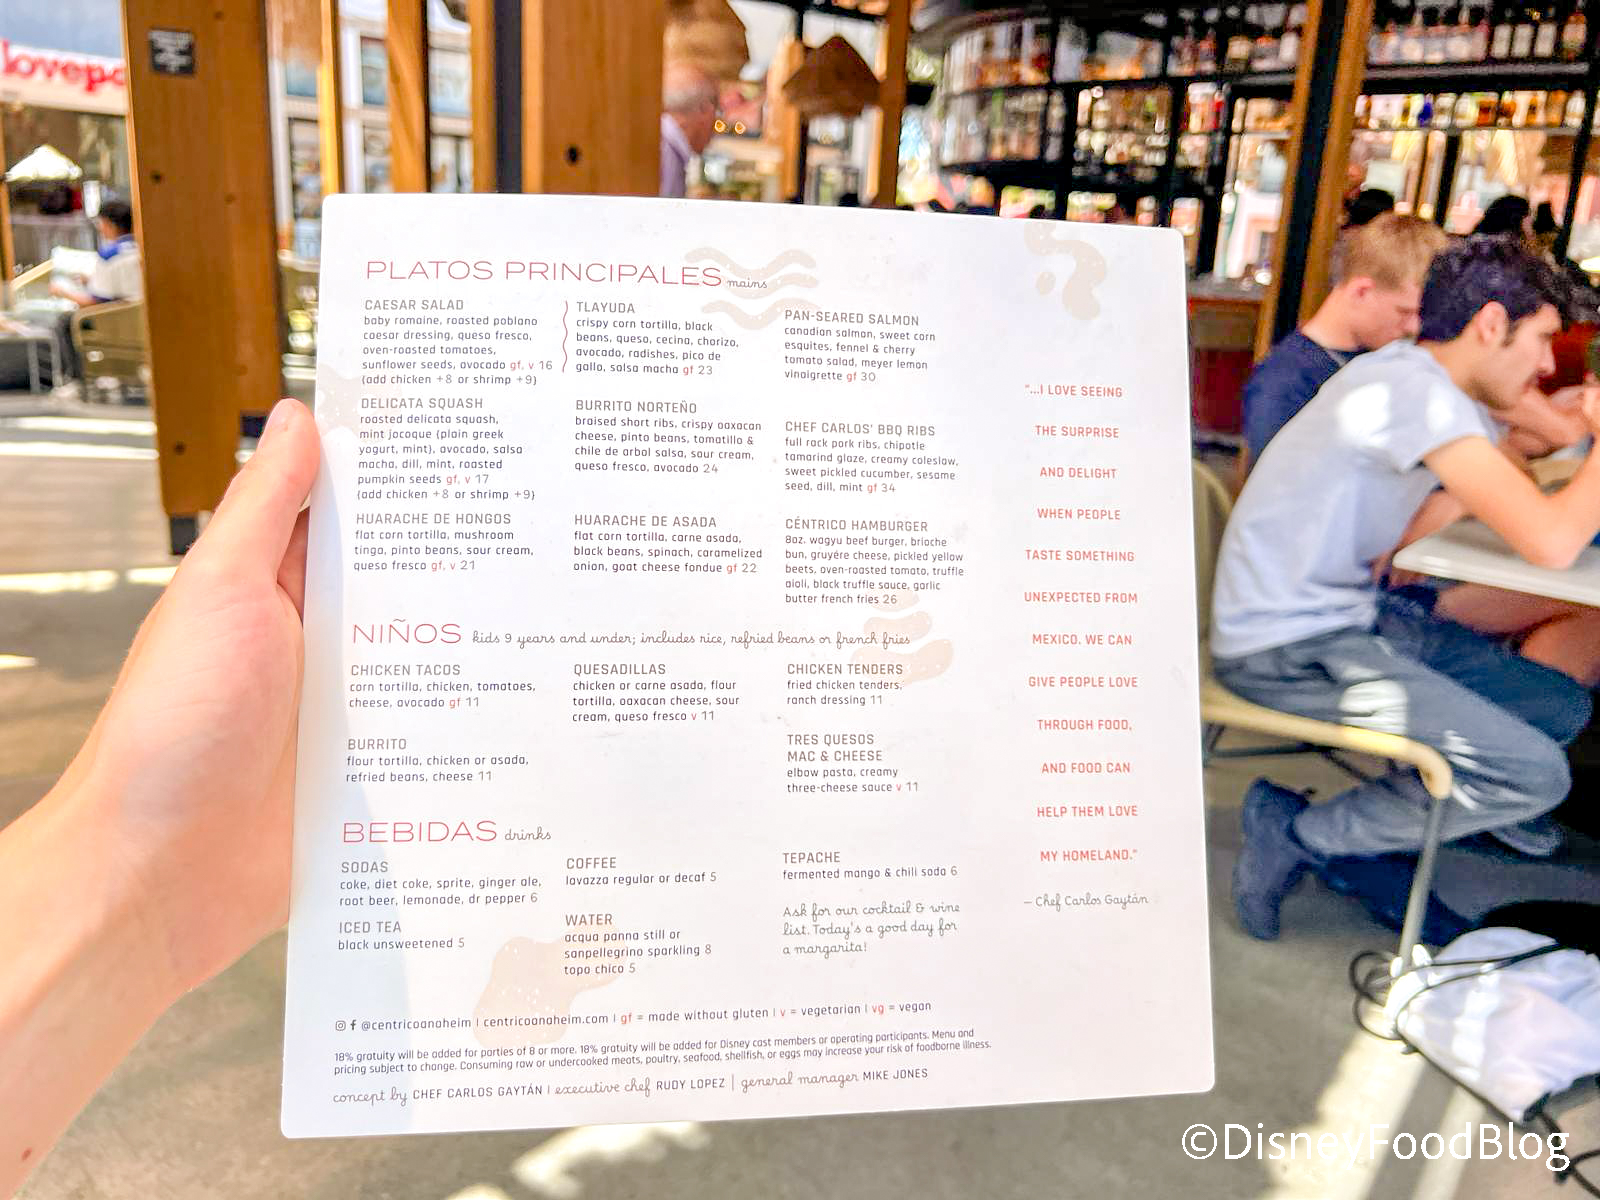 lovepo
PLATOS PRINCIPALES mains
CAESAR SALAD
baby romaine, roasted poblano
caesar dressing, queso fresco,
oven-roasted tomatoes,
sunflower seeds, avocado gf, v 16
(add chicken +8 or shrimp +9)
DELICATA SQUASH
roasted delicata squash,
mint jocoque (plain greek
yogurt, mint), avocado, salsa
macha, dill, mint, roasted
pumpkin seeds gf, v 17
(add chicken +8 or shrimp +9)
HUARACHE DE HONGOS
flat corn tortilla, mushroom
tinga, pinto beans, sour cream,
queso fresco gf, v 21
TLAYUDA
crispy corn tortilla, black
beans, queso, cecina, chorizo,
avocado, radishes, pico de
gallo, salsa macha gf 23
BURRITO NORTEÑO
braised short ribs, crispy oaxacan
cheese, pinto beans, tomatillo &
chile de arbol salsa, sour cream,
queso fresco, avocado 24
HUARACHE DE ASADA
flat corn tortilla, carne asada,
black beans, spinach, caramelized
onion, goat cheese fondue gf 22
PAN-SEARED SALMON
canadian salmon, sweet corn
esquites, fennel & cherry
tomato salad, meyer lemon
vinaigrette gf 30
CHEF CARLOS' BBQ RIBS
full rack pork ribs, chipotle
tamarind glaze, creamy coleslaw,
sweet pickled cucumber, sesame
seed, dill, mint gf 34
CÉNTRICO HAMBURGER
8oz. wagyu beef burger, brioche
bun, gruyére cheese, pickled yellow
beets, oven-roasted tomato, truffle
aioli, black truffle sauce, garlic
butter french fries 26
NIÑOS kids 9 years and under; includes rice, refried beans or french fries
CHICKEN TACOS
corn tortilla, chicken, tomatoes,
cheese, avocado gf 11
BURRITO
flour tortilla, chicken or asada,
refried beans, cheese 11
QUESADILLAS
chicken or carne asada, flour
tortilla, oaxacan cheese, sour
cream, queso fresco v 11
CHICKEN TENDERS
fried chicken tenders,
ranch dressing 11
TRES QUESOS
MAC & CHEESE
elbow pasta, creamy
three-cheese sauce v 11
BEBIDAS drinks
SODAS
coke, diet coke, sprite, ginger ale,
root beer, lemonade, dr pepper 6
ICED TEA
black unsweetened 5
COFFEE
lavazza regular or decaf 5
WATER
acqua panna still or
sanpellegrino sparkling 8
topo chico 5
TEPACHE
fermented mango & chili soda 6
Ask for our cocktail & wine
list. Today's a good day for
a margarita!
"...I LOVE SEEING
THE SURPRISE
AND DELIGHT
WHEN PEOPLE
TASTE SOMETHING
UNEXPECTED FROM
MEXICO. WE CAN
GIVE PEOPLE LOVE
THROUGH FOOD,
AND FOOD CAN
HELP THEM LOVE
MY HOMELAND."
– Chef Carlos Gaytán
@centricoanaheim | centricoanaheim.com | gf = made without gluten | v = vegetarian | vg = vegan
18% gratuity will be added for parties of 8 or more. 18% gratuity will be added for Disney cast members or operating participants. Menu and
pricing subject to change. Consuming raw or undercooked meats, poultry, seafood, shellfish, or eggs may increase your risk of foodborne illness.
concept by CHEF CARLOS GAYTÁN | executive chef RUDY LOPEZ | general manager MIKE JONES
©DisneyFoodBlog